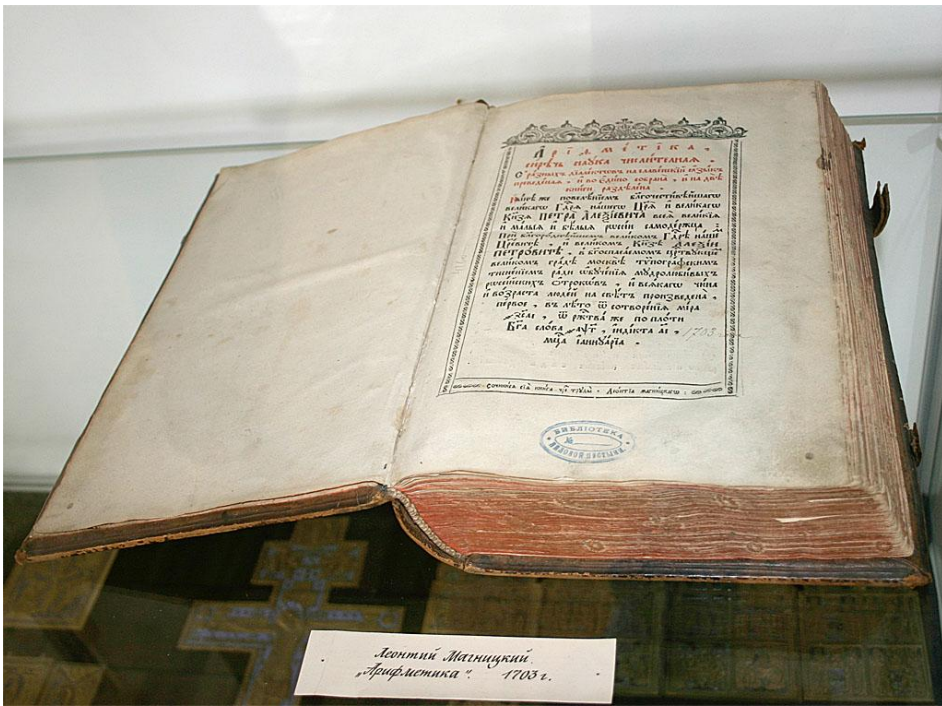 Арїѳметїка,
сирѣчь наука числителная.
С̾ разныхъ дїалектѡвъ на славенскїй ѧзыкъ
преведеная, и во едино собрана, и на двѣ
книги раздѣлена.
Нн҃ѣ же повелѣнїемъ благочестивѣйшагѡ
великагѡ Гд҃рѧ нашегѡ Цр҃ѧ и великагѡ
Кн҃зѧ ПЕТРА АЛЕѮїевича всеѧ великїѧ
и малыѧ и бѣлыѧ рѡссїи самодержца,
При благороднѣйшемъ великомъ Гд҃рѣ нашемъ
Цр҃евичѣ, и великомъ Кн҃зѣ АЛЕѮїи
ПЕТРОВИЧѢ, в̾ бг҃оспасаемомъ црⷭ҇твующемъ
великомъ градѣ москвѣ тѷпографскимъ
тисненїемъ ради ѡбученїѧ мудролюбивыхъ
рѡссїйскихъ ѻтрокѡвъ, и всѧкагѡ чина
и возраста людей на свѣтъ произведена,
первое, въ лѣто ѿ сотворенїѧ мїра
҂зс҃аі, ѿ ржⷭ҇тва же по плоти
Бг҃а слова ҂аѱ҃г, індікта аі,
мцⷭ҇а їаннуарїа.
1703
Сочинисѧ сїѧ книга чрез̾ труды Леонтїа магницкагѡ
БИБЛІОТЕКА
№
Леонтий Магницкий.
„Арифметика". 1703 г.